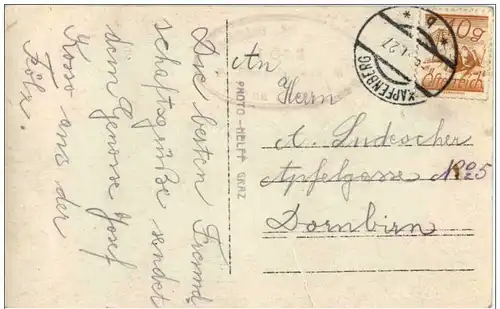 Die besten Freund
schaftsgrüße sendet
dem Genosse Josef
Koso aus der
Fölz.
PHOTO-HELFF GRAZ
An
Herrn
A. Ludescher
Apfelgasse No 5
Dornbirn
KAPFENBERG
27
* b *
10g
Österreich